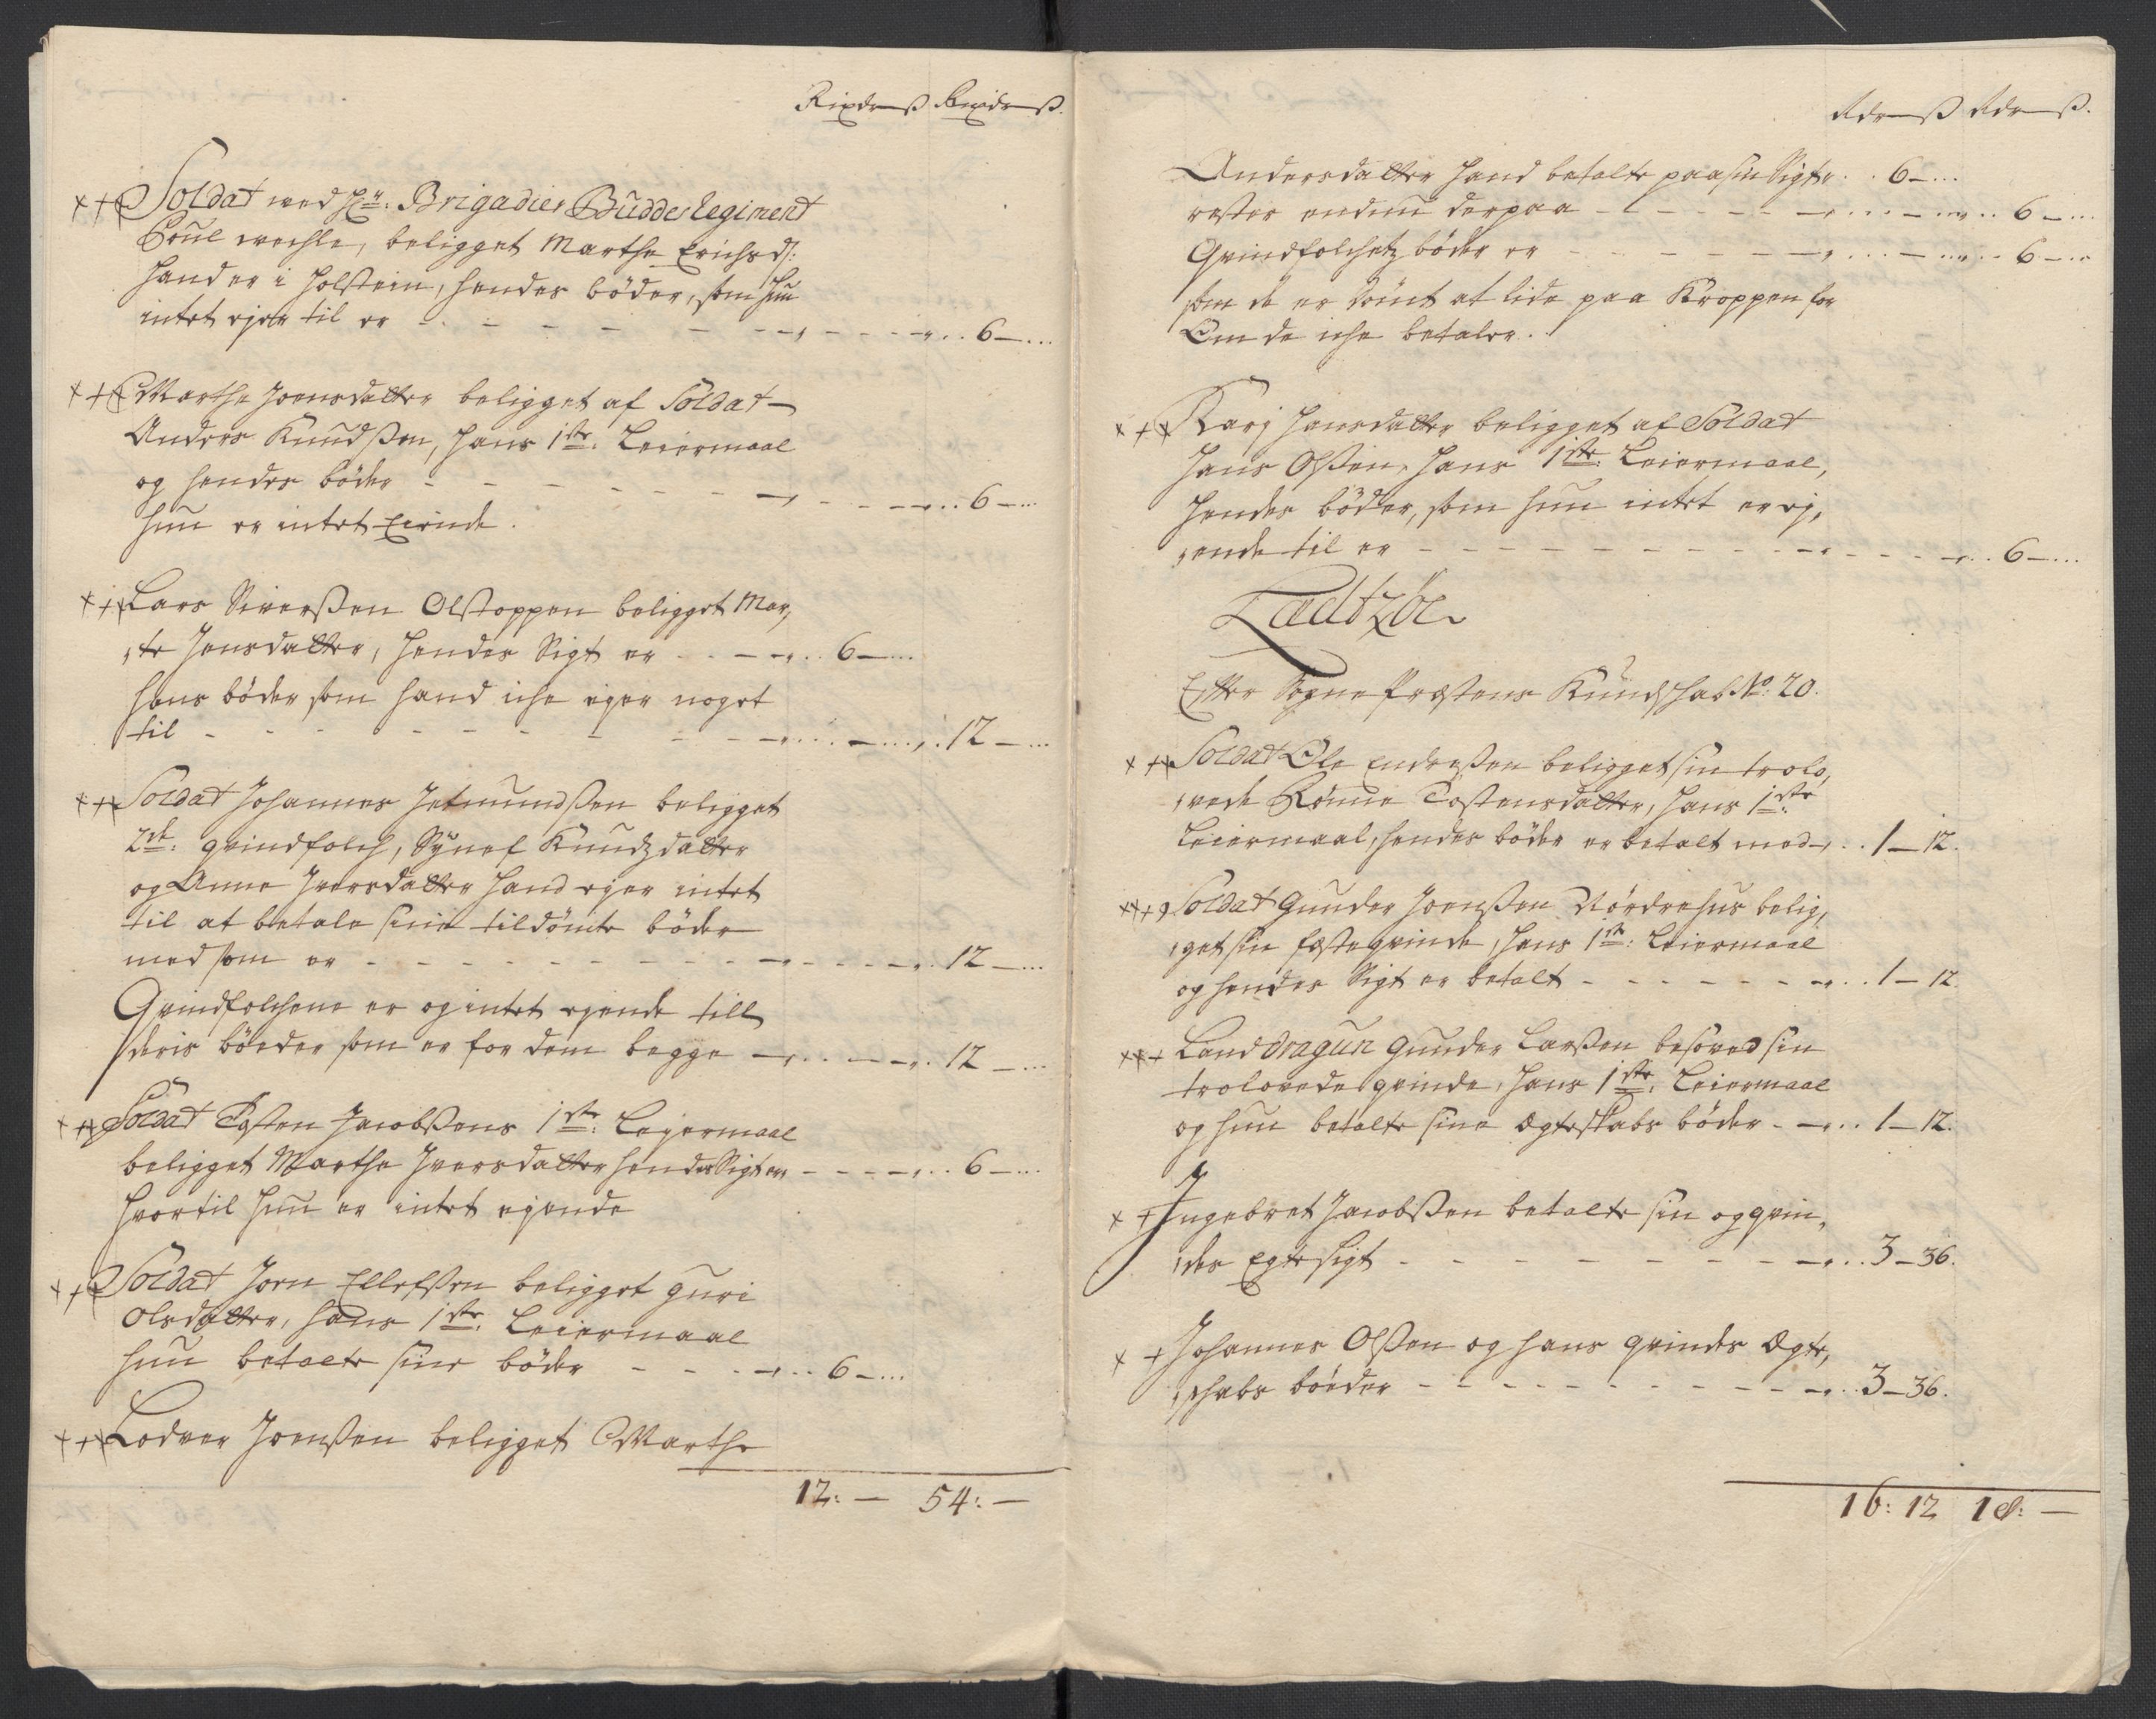 Rixdr ß Rixdr ß.
Soldat ved Hr: Brigadier Buddes Regiment
Poul wechle, beligget Marthe Erichsd:
hand er i Holstein, hendes böder, som hun
intet ejer til er - - - 6 -
Marthe Joensdatter beligget af Soldat
Anders Knudßen, hans 1ste: Leiermaal
og hendes böder - - - 6 -
hun er intet Eiende.
Lars Siverßen Olstoppen beligget Mar,
,te Jensdatter, hendes Sigt er - - 6 -
hans böder som hand iche ejer noget
til - - - 12 -
Soldat Johannes Jetmundßen beligget
2de: qvindfolch, Synef Knudzdatter
og Anne Iversdatter hand ejer intet
til at betale sine tildömte böder
med som er - - - 12 -
Qvindfolchene er og intet ejende till
deris böeder som er for dem begge - 12 -
Soldat Tosten Jacobßens 1ste: Lejermaal
beligget Marthe Iversdatter hendes Sigt er - - 6 -
hvortil hun er intet ejende
Soldat Joen Ellefßen beligget Guri
Olsdatter, hans 1ste: Leiermaal
hun betalte sine böder - - - 6 -
Lodver Joenßen beligget Marthe
12: — 54: —
Rdr ß Rdr ß.
Andersdatter hand betalte paa sin Sigt - 6 -
rester endnu derpaa - - - 6 -
Qvindfolchetz böder er - - - 6 -
som de er dömt at lide paa Kroppen for
Om de iche betaler.
Karj Hansdatter beligget af Soldat
Hans Olßen, hans 1ste: Leiermaal,
hendes böder, som hun intet er ej,
,ende til er - - - 6 -
Efter Sogne Prestens Kundschab No: 20.
Soldat Ole Endreßen beligget sin trolo,
,vede Rönne Tostensdatter, hans 1ste:
Leiermaal, hendes böder er betalt med - 1 - 12.
Soldat Gunder Joenßen Nördrehus belig,
,get sin festeqvinde, hans 1ste: Leiermaal
og hendes Sigt er betalt - - - 1 - 12.
Land dragun Gunder Larßen besoved sin
trolovede qvinde, hans 1ste: Leiermaal
og hun betalte sine Ægteskabs böder - 1 - 12.
Ingebret Jacobßen betalte sin og qvin,
,des Egte sigt - - - 3 - 36.
Johannes Olßen og hans qvindes Ægte,
,schabs böeder - - - 3 - 36.
16: 12 18: —